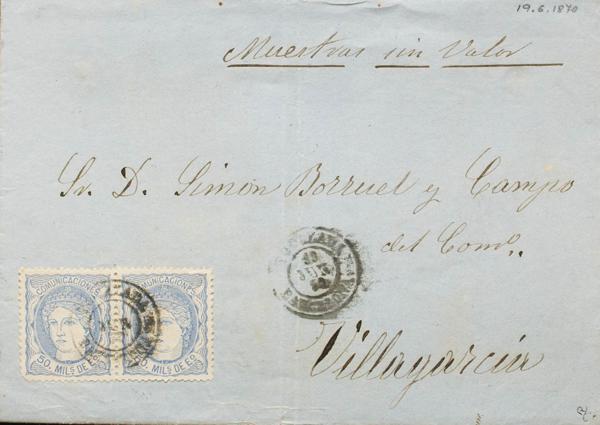 19.6.1870
Muestras sin Valor
Sr. D. Simon Borruel y Campo
del Como..
Villagarcia
COMUNICACIONES COMUNICACIONES
50. MILS. DE 50. MILS. DE EO.